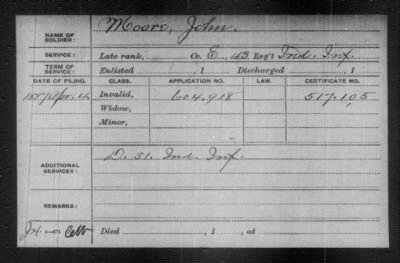 NAME OF SOLDIER: Moore, John.
SERVICE: Late rank, Co. E, 43 Reg't Ind. Inf.
TERM OF SERVICE: Enlisted , 1 Discharged , 1
DATE OF FILING. CLASS. APPLICATION NO. LAW. CERTIFICATE NO.
Apr. Invalid, 604.918 517.105
Widow,
Minor,
ADDITIONAL SERVICES: D. 31. Ind. Inf.
REMARKS:
Died , 1 , at